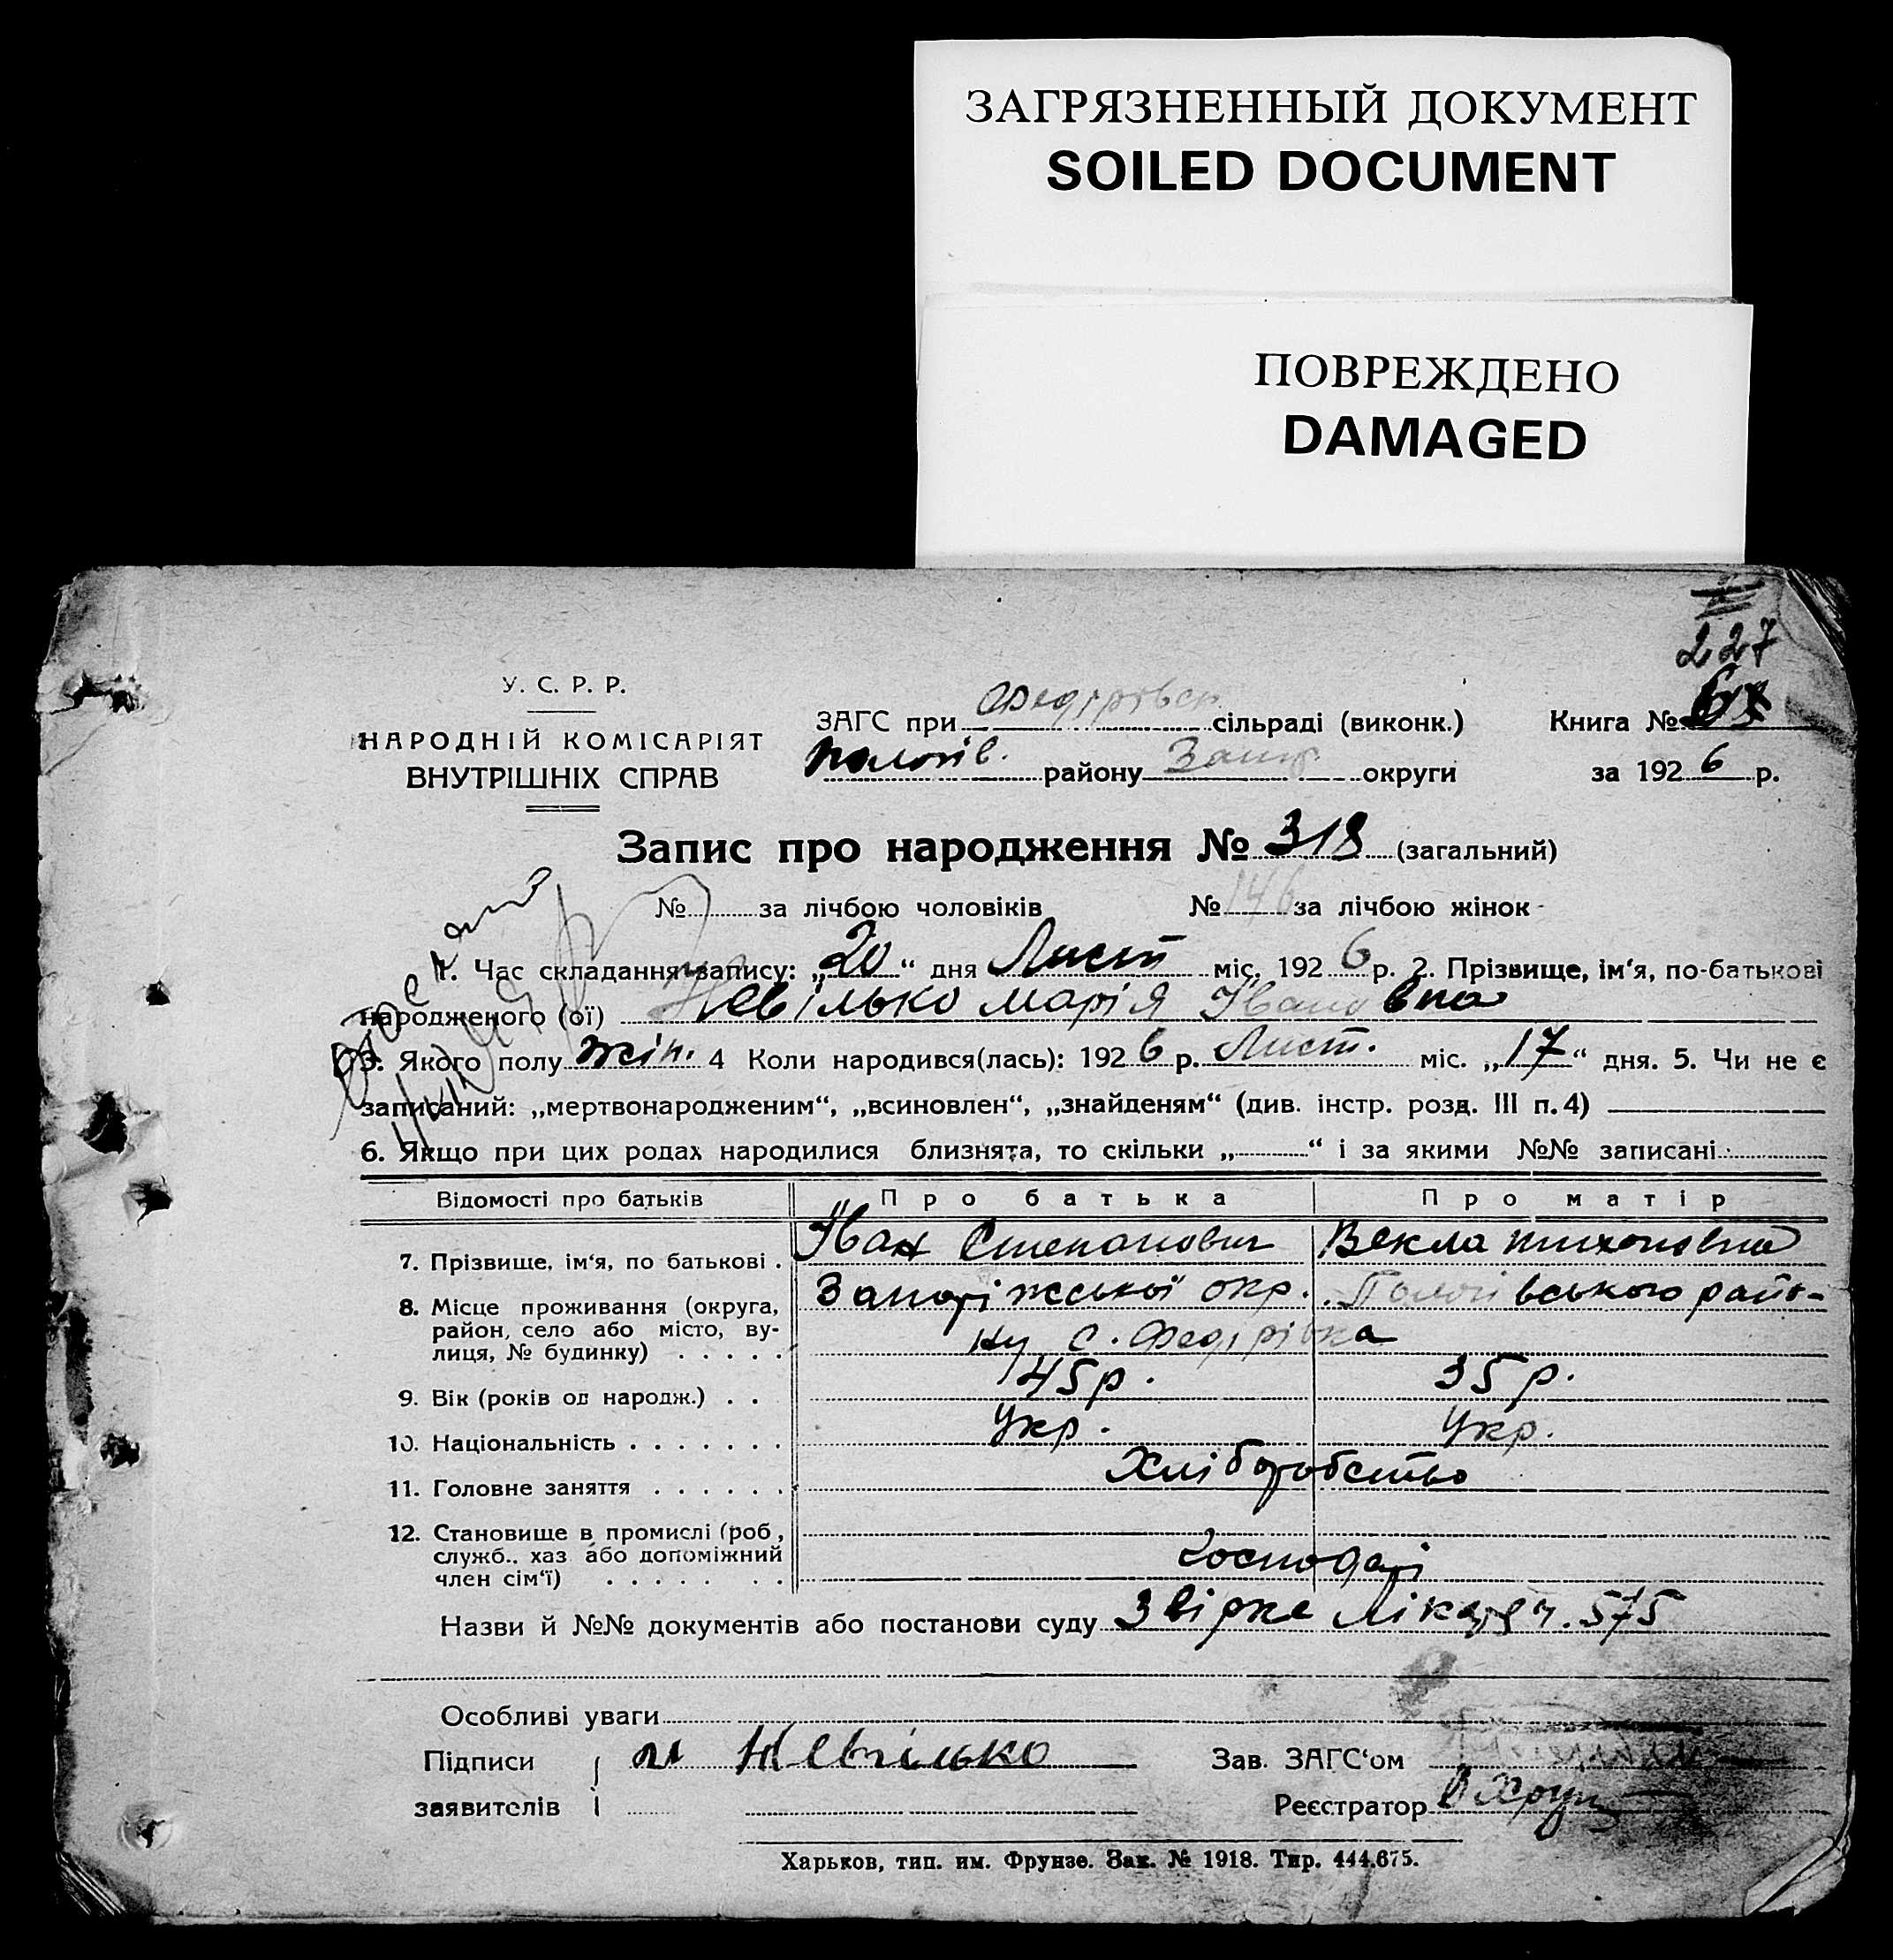 ЗАГРЯЗНЕННЫЙ ДОКУМЕНТ
SOILED DOCUMENT
ПОВРЕЖДЕНО
DAMAGED
227
У. С. Р. Р.
НАРОДНІЙ КОМІСАРІЯТ
ВНУТРІШНІХ СПРАВ
ЗАГС при Федорівськ сільраді (виконк.) Книга №
Пологів. району Запор. округи за 1926 р.
Запис про народження № 318 (загальний)
№ за лічбою чоловіків № 146 за лічбою жінок
1. Час складання запису: „20“ дня Лист міс. 1926 р. 2. Прізвище, ім'я, по-батькові
народженого (ої) Невілько Марія Івановна
3. Якого полу жін. 4 Коли народився(лась): 1926 р. Лист. міс. „17“ дня. 5. Чи не є
записаний: „мертвонародженим“, „всиновлен“, „знайденям“ (див. інстр. розд. III п. 4)
6. Якщо при цих родах народилися близнята, то скільки „ “ і за якими №№ записані
Відомості про батьків Про батька Про матір
7. Прізвище, ім'я, по батькові . Іван Степанович Векла Тихоновна
8. Місце проживання (округа, район, село або місто, вулиця, № будинку) . . . . . Запоріжської окр. Пологівського райо-
ну с. Федорівка
9. Вік (років од народж.) . . 45 р. 35 р.
10. Національність . . . . . . . Укр. Укр.
11. Головне заняття . . . . . . Хліборобство
12. Становище в промислі (роб, служб., хаз або допоміжний член сім'ї) . . . . . . . Господарі
Назви й №№ документів або постанови суду 575
Особливі уваги
Підписи Невілько Зав. ЗАГС'ом
заявителів Реєстратор
Харьков, тип. им. Фрунзе. Зак. № 1918. Тир. 444.675.